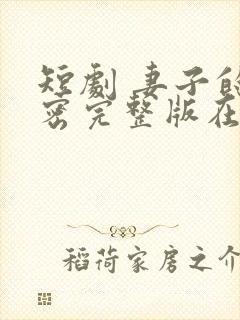 短劇 妻子的
密完整版在
稻荷家房之介